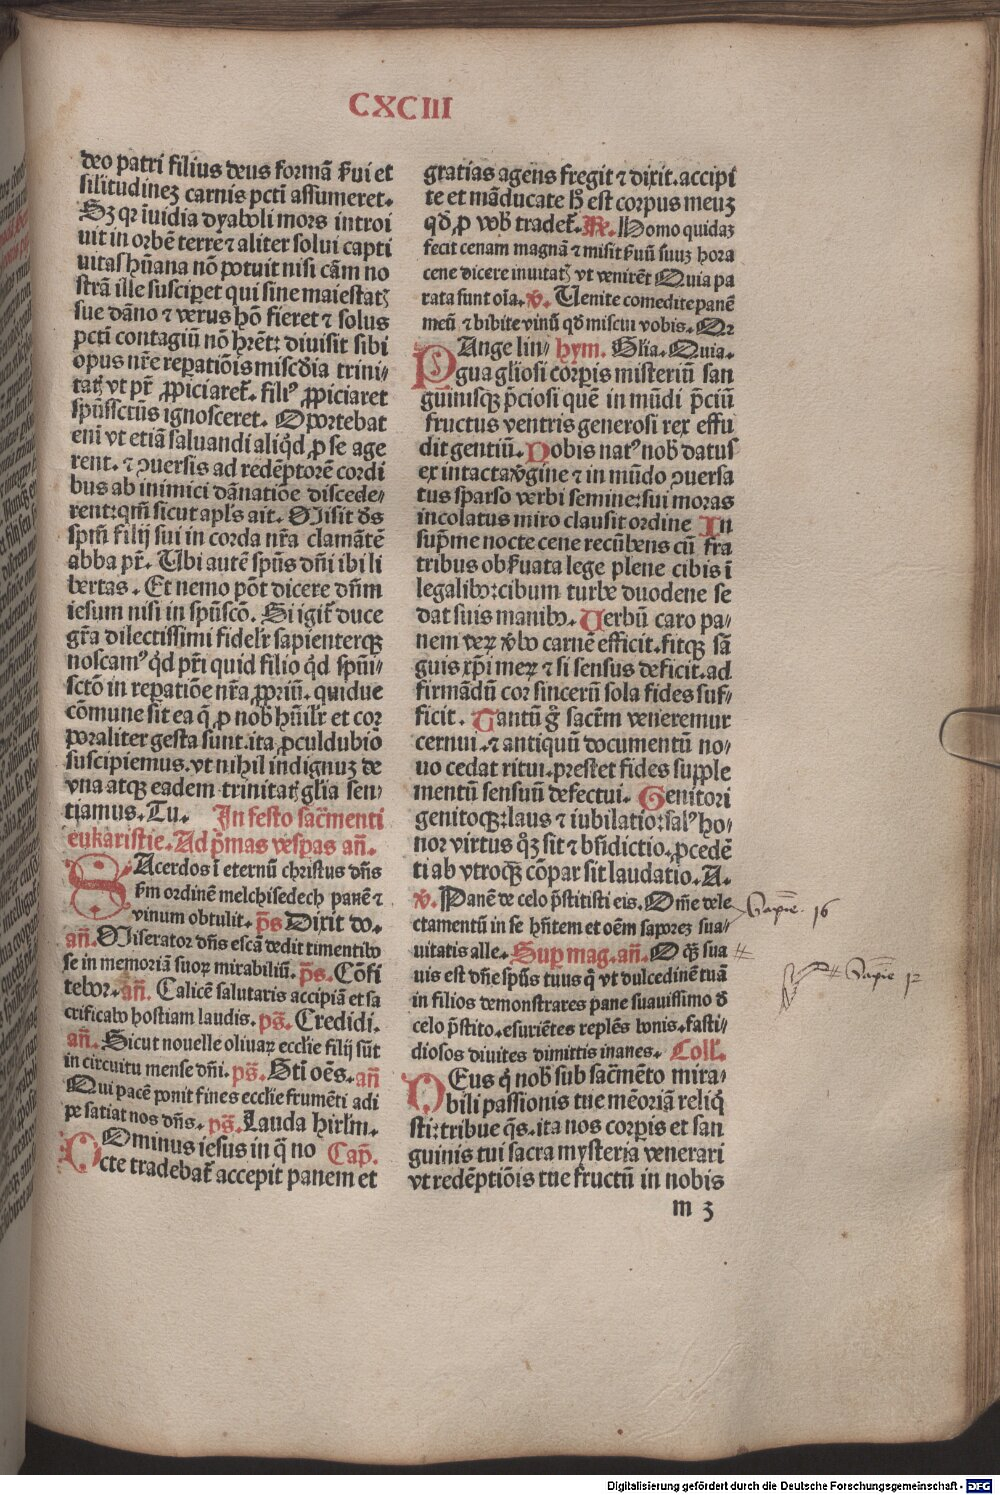 CXCIII
deo patri filius deus formā ẜui et
silitudineꝫ carnis pcti assumeret.
Sꝫ qꝛ īuidia dyaboli mors introi
uit in orbē terre ⁊ aliter solui capti
uitas hūana nō potuit nisi cām no
strā ille susciperet qui sine maiestatꝭ
sue dāno ⁊ verus hō fieret ⁊ solus
pcti contagiū nō hrēt: diuisit sibi
opus nr̄e repatiōis misc̄dia trini/
tatꝭ vt pr̄ ꝓpiciaret᷑. filiꝰ ꝓpiciaret
spūssctūs ignosceret. Oportebat
eni vt etiā saluandi aliqd̄ ꝓ se age
rent. ⁊ ꝯuersis ad redēptorē cordi
bus ab inimici dānatiōe discede/
rent: qm̄ sicut apl's ait. Misit ds̄
spm̄ filij sui in corda nr̄a clamātē
abba pr̄. Ubi autē spūs dn̄i ibi li
bertas. Et nemo pōt dicere dn̄m
iesum nisi in spūscō. Si igit᷑ duce
gr̄a dilectissimi fidelr̄ sapienterqꝫ
noscamꝰ qd̄ pr̄i quid filio qd̄ spūi/
sctō in repatiōe nr̄a ꝓpriū. quidue
cōmune sit ea q̄ ꝓ nob̄ hūilr̄ et cor
poraliter gesta sunt. ita ꝓculdubio
suscipiemus. vt nihil indignuꝫ de
vna atqꝫ eadem trinitatꝭ glīa sen/
tiamus. Tu. In festo sac̄menti
eukaristie. Ad p̄mas vesꝑas an̄.
SAcerdos ī eternū christus dn̄s
ẜm ordinē melchisedech panē ⁊
vinum obtulit. ps̄ Dixit do.
an̄. Miserator dn̄s escā dedit timentibꝫ
se in memoriā suoꝝ mirabiliū. ps̄. Cōfi
tebor. an̄. Calicē salutaris accipiā et sa
crificabo hostiam laudis. ps̄. Credidi.
an̄. Sicut nouelle oliuaꝝ ecclie filij sūt
in circuitu mense dn̄i. ps̄. Bti oēs. an̄
Qui pacē ponit fines ecclie frumēti adi
pe satiat nos dn̄s. ps̄. Lauda hirlm̄.
DOminus iesus in q̄ no Cap̄.
cte tradebat᷑ accepit panem et
gratias agens fregit ⁊ dixit. accipi
te et māducate hꝰ est corpus meuꝫ
qd̄ ꝓ vob̄ tradet᷑. R̄. Homo quidaꝫ
fecit cenam magnā ⁊ misit ẜuū suuꝫ hora
cene dicere inuitatꝭ vt venirēt Quia pa
rata sunt oīa. v̄. Uenite comedite panē
meū ⁊ bibite vinū qd̄ miscui vobis. Qr
PAnge lin/ hym. Glīa. Quia.
gua gliosi corꝑis misteriū san
guinisqꝫ p̄ciosi quē in mūdi p̄ciū
fructus ventris generosi rex effu
dit gentiū. Nobis natꝰ nob̄ datus
ex intacta v̄gine ⁊ in mūdo ꝯuersa
tus sparso verbi semine: sui moras
incolatus miro clausit ordine In
sup̄me nocte cene recūbens cū fra
tribus obẜuata lege plene cibis ī
legalibꝫ: cibum turbe duodene se
dat suis manibꝫ. Uerbū caro pa/
nem veꝝ v̄bo carnē efficit. fitqꝫ sā
guis xp̄i meꝝ ⁊ si sensus deficit. ad
firmādū cor sincerū sola fides suf/
ficit. Tantū g̊ sacr̄m veneremur
cernui. ⁊ antiquū documentū no/
uo cedat ritui. prestet fides supple
mentū sensuū defectui. Genitori
genitoqꝫ: laus ⁊ iubilatio: salꝰ ho/
nor virtus qꝫ sit ⁊ bn̄dictio. ꝓcedē
ti ab vtroqꝫ cōpar sit laudatio. A.
v̄. Panē de celo p̄stitisti eis. Om̄e dele
ctamentū in se hn̄tem et oēm saporeꝫ sua/
uitatis alle. Suꝑ mag. an̄. O qꝫ sua
uis est dn̄e spūs tuus q̄ vt dulcedinē tuā
in filios demonstrares pane suauissimo d̄
celo p̄stito. esuriētes reples bonis. fasti/
diosos diuites dimittis inanes. Coll'.
DEus q̄ nob̄ sub sac̄mēto mira/
bili passionis tue mēoriā reliq̄
sti: tribue qs̄. ita nos corꝑis et san
guinis tui sacra mysteria venerari
vt redēptiōis tue fructū in nobis
m 3
Sapie. 16
Sapie 12
Digitalisierung gefördert durch die Deutsche Forschungsgemeinschaft - DFG